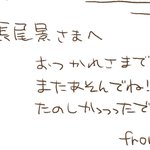 長尾景さまへ
おつかれさまで
またあそんでね!
たのしかっったで
from